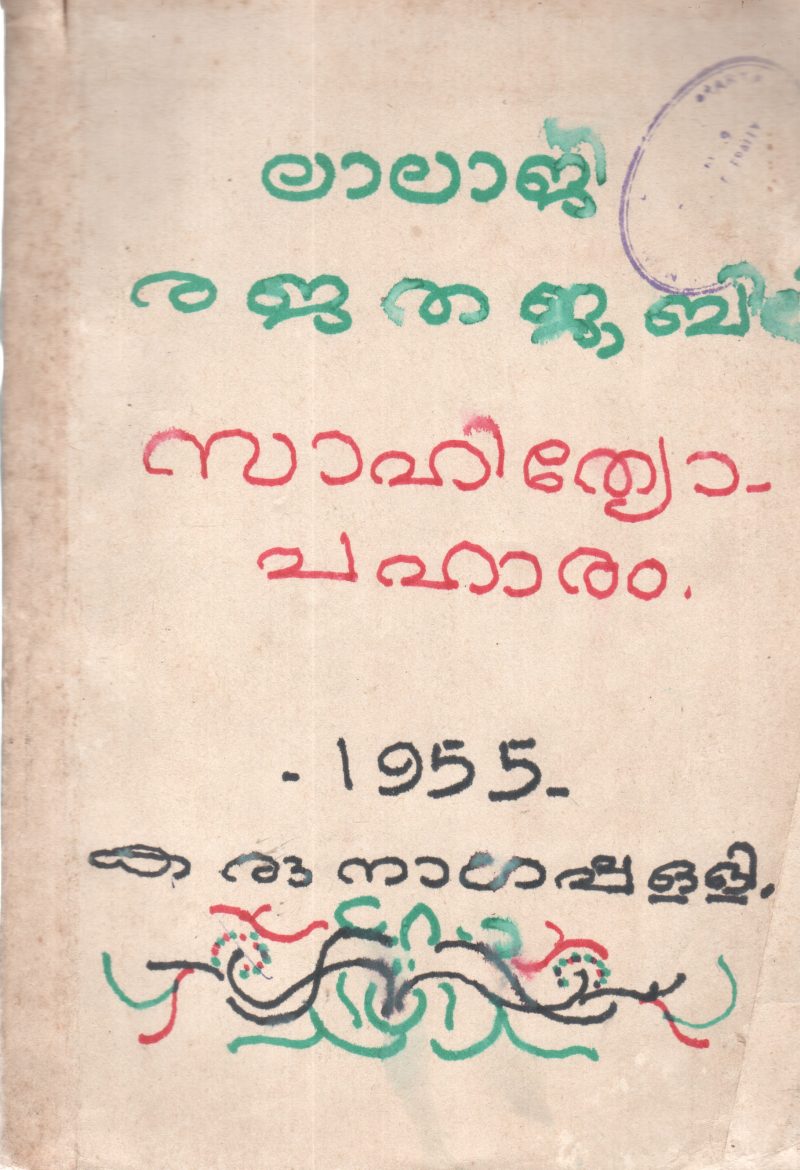 ലാലാജി
രജതജൂബിലി
സാഹിത്യോ-
പഹാരം.
- 1955 -
കരുനാഗപ്പള്ളി.